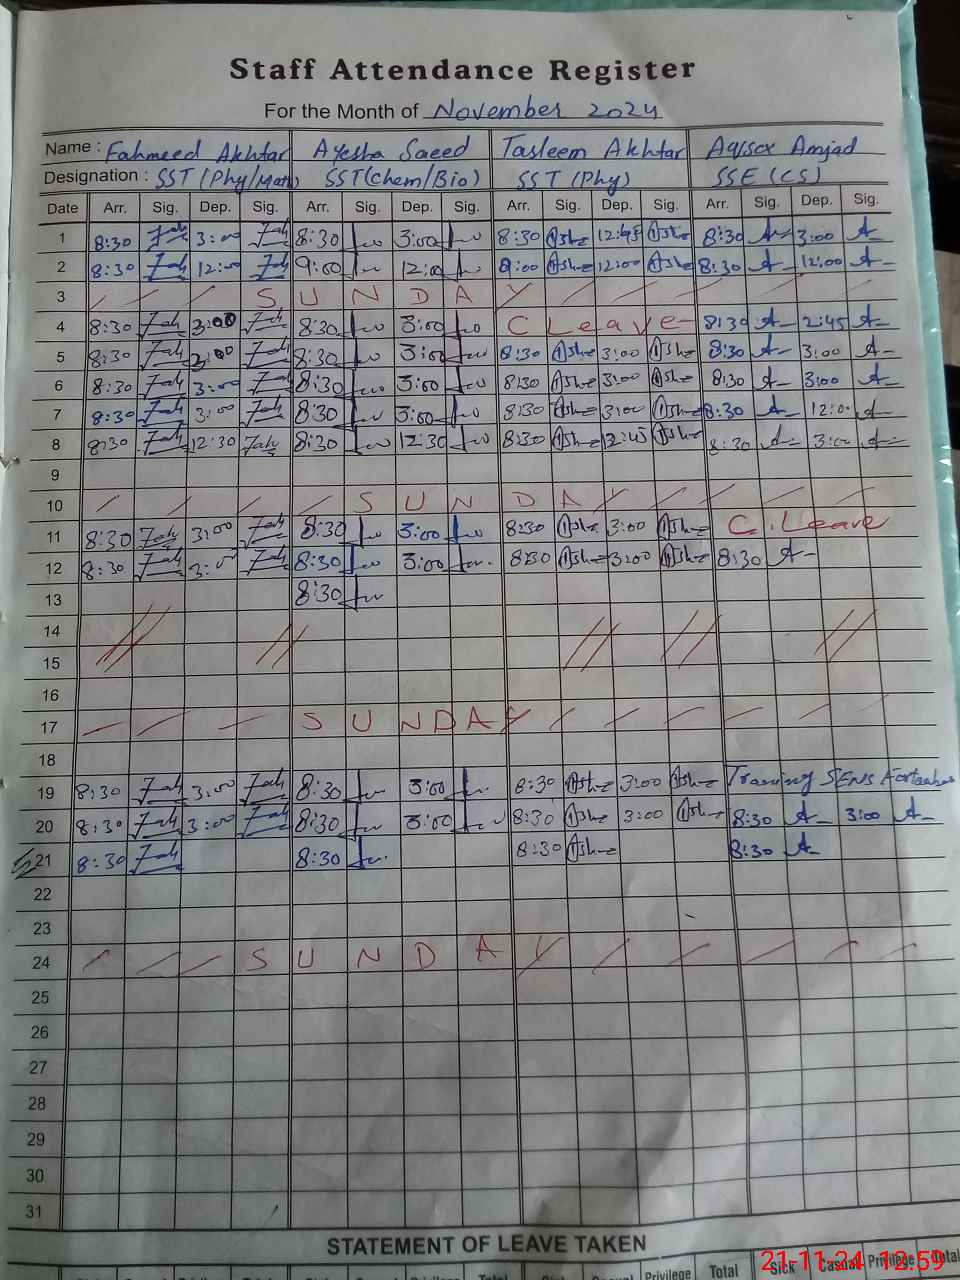 Staff Attendance Register
For the Month of November 2024
Name : Fahmeed Akhtar Ayesha Saeed Tasleem Akhtar Aqsa Amjad
Designation : SST (Phy/Math) SST(Chem/Bio) SST (Phy) SSE (CS)
Date Arr. Sig. Dep. Sig. Arr. Sig. Dep. Sig. Arr. Sig. Dep. Sig. Arr. Sig. Dep. Sig.
1 8:30 3:00 8:30 3:00 8:30 12:45 8:30 3:00
2 8:30 12:00 9:00 12:00 8:00 12:00 8:30 12:00
3 SUNDAY
4 8:30 3:00 8:30 3:00 C Leave 8:30 2:45
5 8:30 3:00 8:30 3:00 8:30 3:00 8:30 3:00
6 8:30 3:00 8:30 3:00 8:30 3:00 8:30 3:00
7 8:30 3:00 8:30 3:00 8:30 3:00 8:30 12:0
8 8:30 12:30 8:30 12:30 8:30 12:45 8:30 3:00
9
10 SUNDAY
11 8:30 3:00 8:30 3:00 8:30 3:00 C. Leave
12 8:30 3:00 8:30 3:00 8:30 3:00 8:30
13 8:30
14
15
16
17 SUNDAY
18
19 8:30 3:00 8:30 3:00 8:30 3:00 Training
20 8:30 3:00 8:30 3:00 8:30 3:00 8:30 3:00
21 8:30 8:30 8:30 8:30
22
23
24 SUNDAY
25
26
27
28
29
30
31
STATEMENT OF LEAVE TAKEN
Privilege Total Sick Casual Privilege Total
21-11-24 12:59